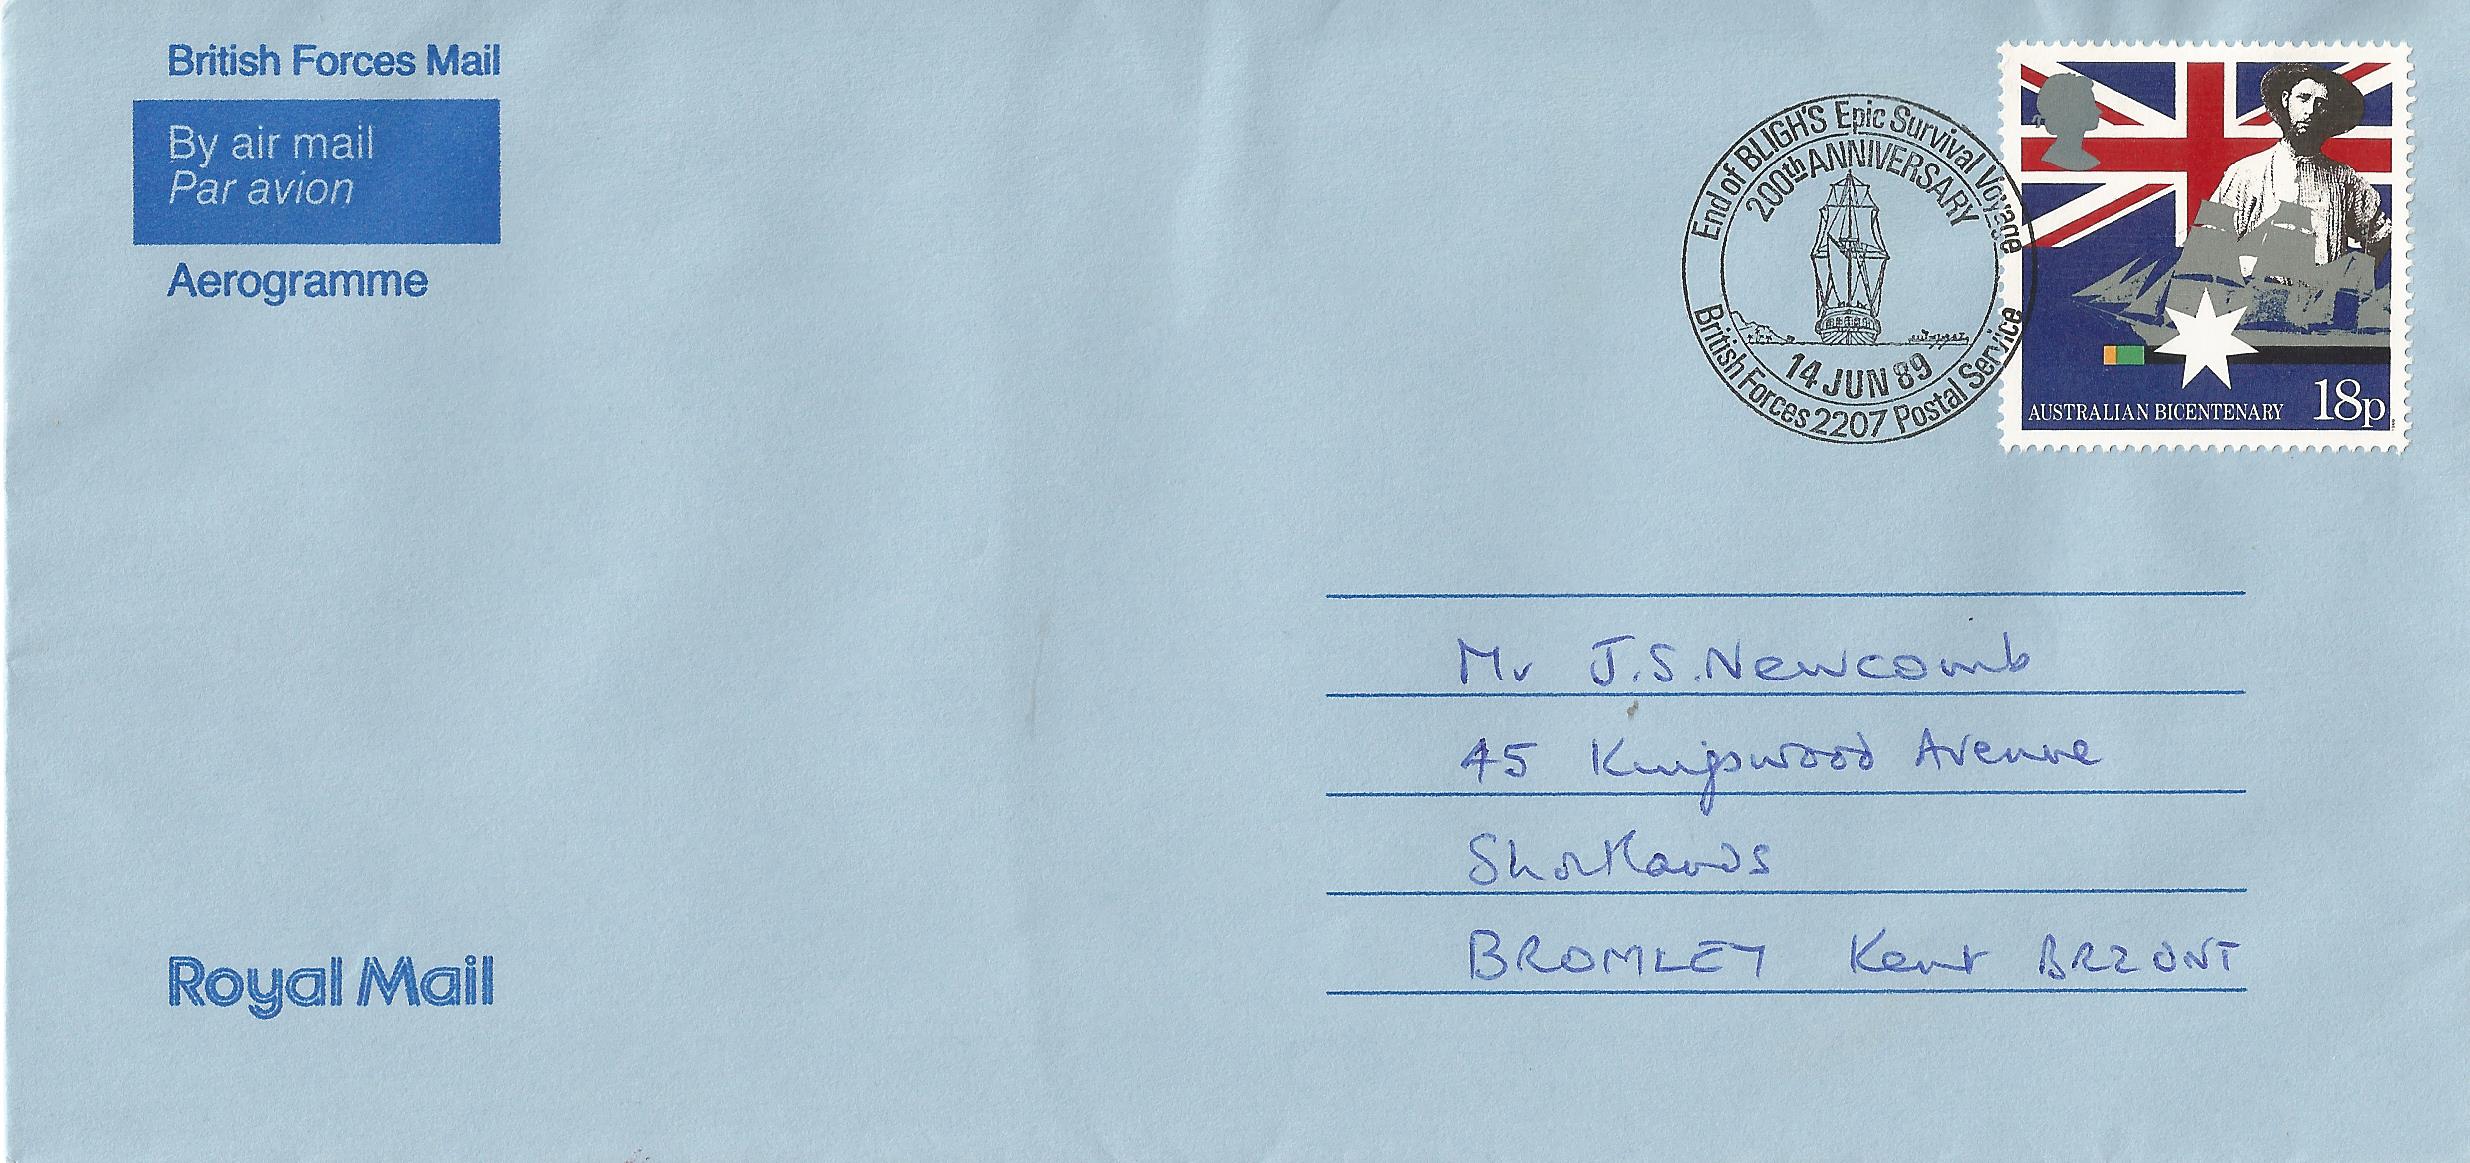 British Forces Mail
By air mail
Par avion
Aerogramme
End of BLIGH'S Epic Survival Voyage
200th ANNIVERSARY
14 JUN 89
British Forces 2207 Postal Service
AUSTRALIAN BICENTENARY 18p
Mr J.S. Newcomb
45 Kingswood Avenue
Shortlands
BROMLEY Kent BR2 0NT
Royal Mail